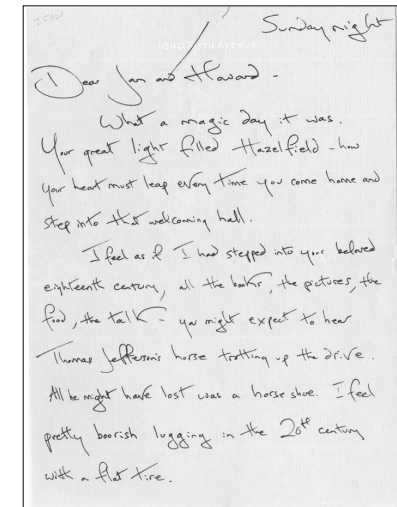 Sunday night
1040 FIFTH AVENUE
Dear Jan and Howard -
What a magic day it was.
Your great light filled Hazelfield - how
your heart must leap every time you come home and
step into that welcoming hall.
I feel as if I had stepped into your beloved
eighteenth century, all the books, the pictures, the
food, the talk - you might expect to hear
Thomas Jefferson's horse trotting up the drive.
All he might have lost was a horse shoe. I feel
pretty boorish lugging in the 20th century
with a flat tire.